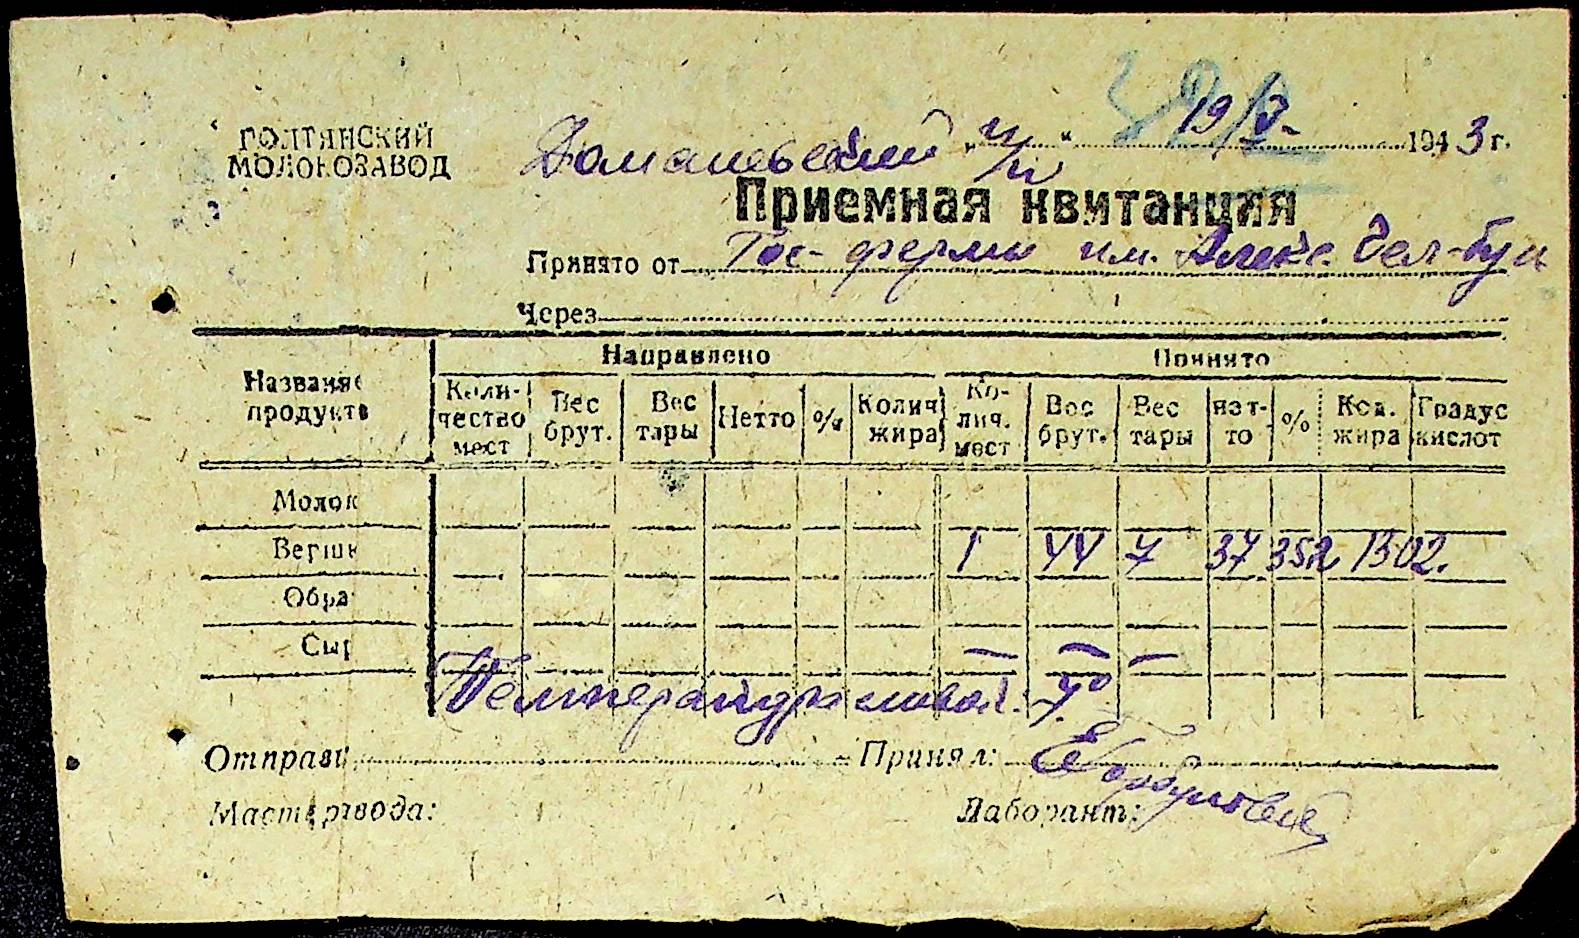 ГОЛТЯНСКИЙ
МОЛОКОЗАВОД
Доманевский
19/V- 1943 г.
Приемная квитанция
Принято от Гос-фермы им. Алекс.
Через
Название продукта Направлено Принято
Количество мест Вес брут. Вес тары Нетто % Колич жира Колич. мест Вес брут. Вес тары нэтто % Кол. жира Градус кислот
Молок
Вершк 1 44 7 37 35 1302.
Обра
Сыр
Температура 7°
Отправи Принял:
Мастер завода: Лаборант: